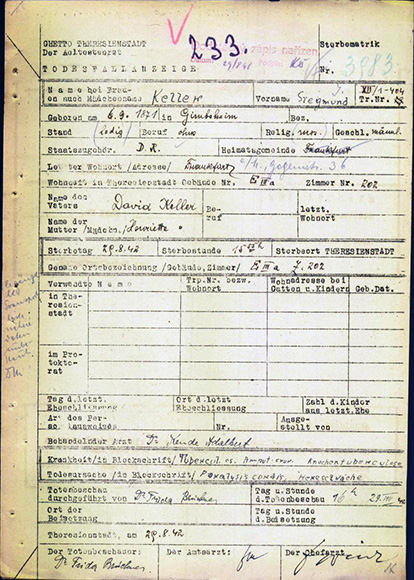 GHETTO THERESIENSTADT
Der Ältestenrat
233.
zápis nařízen
Sterbematrik
Nr. 3983.
TODESFALLANZEIGE
Name bei Frauen auch Mädchenname Keller Vorname Siegmund J. Tr.Nr. XII/1-404
Geboren am 6.9.1871 in Gimbsheim Bez.
Stand ledig Beruf ohne Relig. mos. Geschl. männl.
Staatszugehör. D.R. Heimatsgemeinde Frankfurt
Letzter Wohnort /Adresse/ Frankfurt 36
Wohnhaft in Theresienstadt Gebäude Nr. E IIIa Zimmer Nr. 202
Name des Vaters David Keller Beruf letzt. Wohnort
Name der Mutter /Mädchn./ Henriette "
Sterbetag 29.8.42 Sterbestunde Sterbeort THERESIENSTADT
Genaue Ortsbezeichnung /Gebäude, Zimmer/ E IIIa Z. 202
Verwandte Name Trp.Nr. bezw. Wohnort Wohnadresse bei Gatten u. Kindern Geb.Dat.
in Theresienstadt
im Protektorat
Tag d.letzt. Eheschliessung Ort d.letzt Eheschliessung Zahl d.Kinder aus letzt.Ehe
Art des Personal ausweises Nr. Ausgestellt von
Behandelnder Arzt Dr. Adalbert
Krankheit/in Blockschrift/
Todesursache /in Blockschrift/ HERZSCHWÄCHE
Totenbeschau durchgeführt von Dr Frida Tag u.Stunde d.Totenbeschau 16h 29.VIII 42
Ort der Beisetzung Tag u.Stunde d.Beisetzung
Theresienstadt, am 29.8.42
Der Totenbeschauer: Der Amtsarzt: Der Chefarzt:
Dr Frida